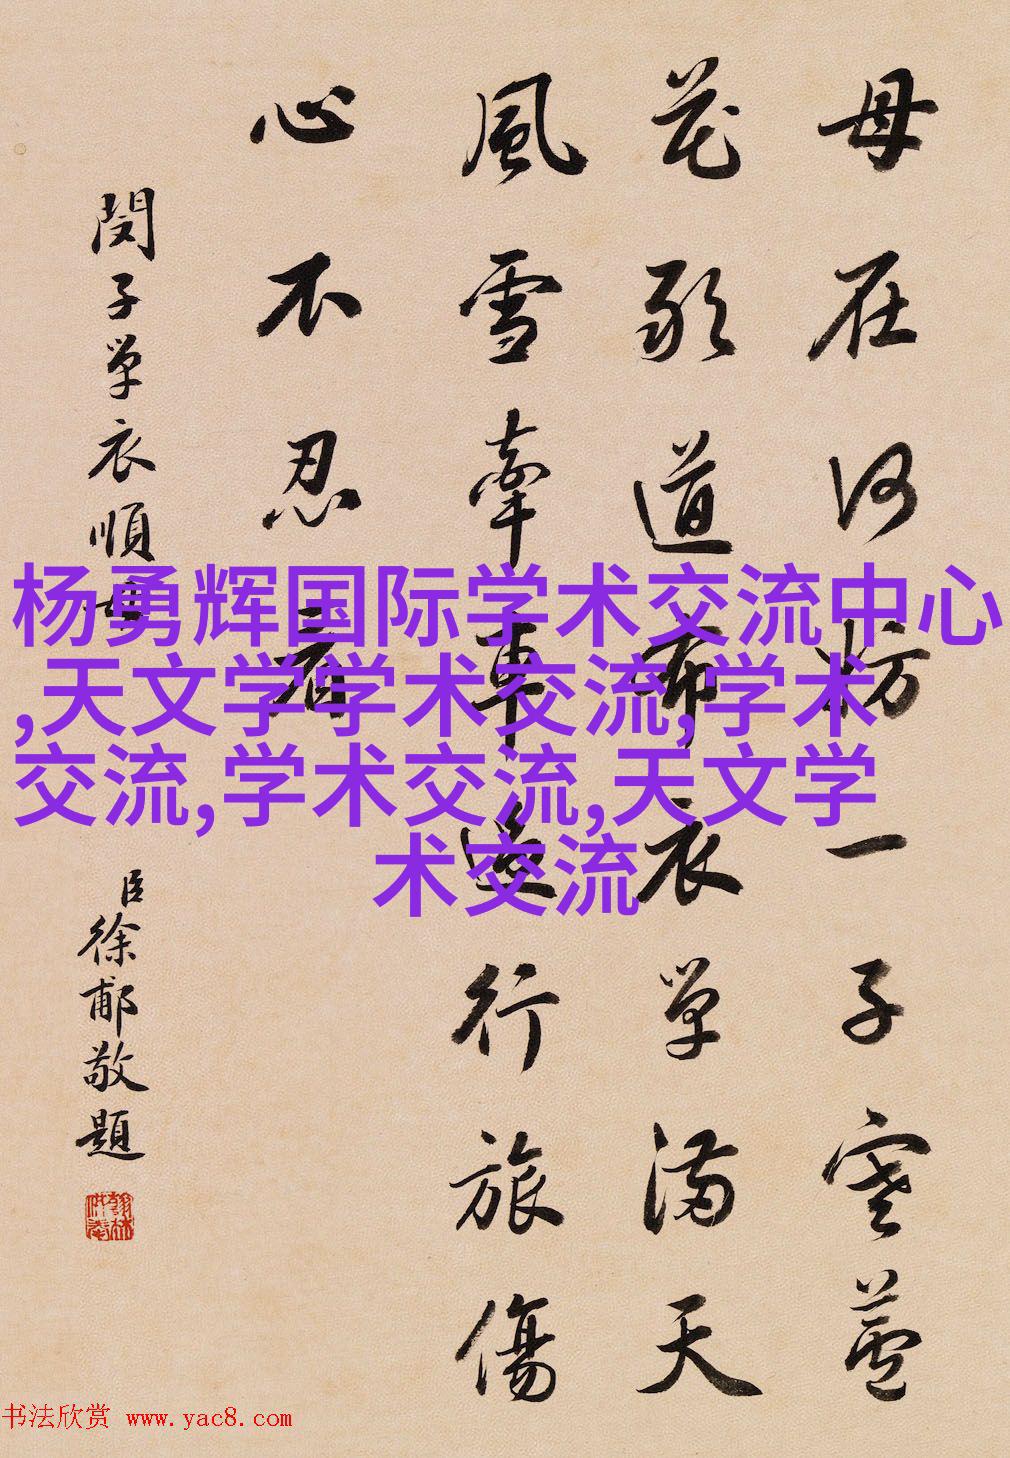 母在何妨一子寒蘆
花道布衣單滿天
風雪牽車行旅傷
心不忍看
閔子單衣順母
臣徐郙敬題
杨勇辉国际学术交流中心
,天文学学术交流,学术
交流,学术交流,天文学
术交流
书法欣赏 www.yac8.com